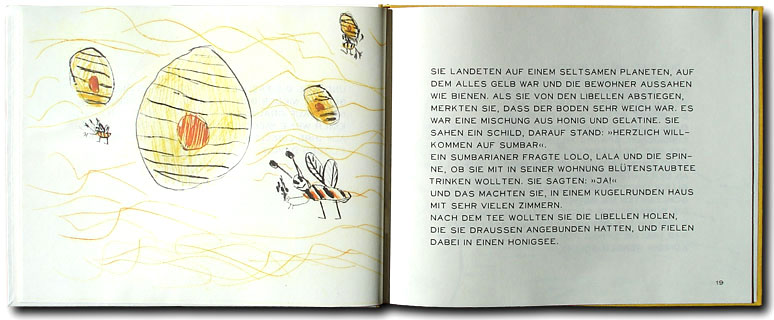 SIE LANDETEN AUF EINEM SELTSAMEN PLANETEN, AUF
DEM ALLES GELB WAR UND DIE BEWOHNER AUSSAHEN
WIE BIENEN. ALS SIE VON DEN LIBELLEN ABSTIEGEN,
MERKTEN SIE, DASS DER BODEN SEHR WEICH WAR. ES
WAR EINE MISCHUNG AUS HONIG UND GELATINE. SIE
SAHEN EIN SCHILD, DARAUF STAND: »HERZLICH WILL-
KOMMEN AUF SUMBAR«.
EIN SUMBARIANER FRAGTE LOLO, LALA UND DIE SPIN-
NE, OB SIE MIT IN SEINER WOHNUNG BLÜTENSTAUBTEE
TRINKEN WOLLTEN. SIE SAGTEN: »JA!«
UND DAS MACHTEN SIE, IN EINEM KUGELRUNDEN HAUS
MIT SEHR VIELEN ZIMMERN.
NACH DEM TEE WOLLTEN SIE DIE LIBELLEN HOLEN,
DIE SIE DRAUSSEN ANGEBUNDEN HATTEN, UND FIELEN
DABEI IN EINEN HONIGSEE.
19